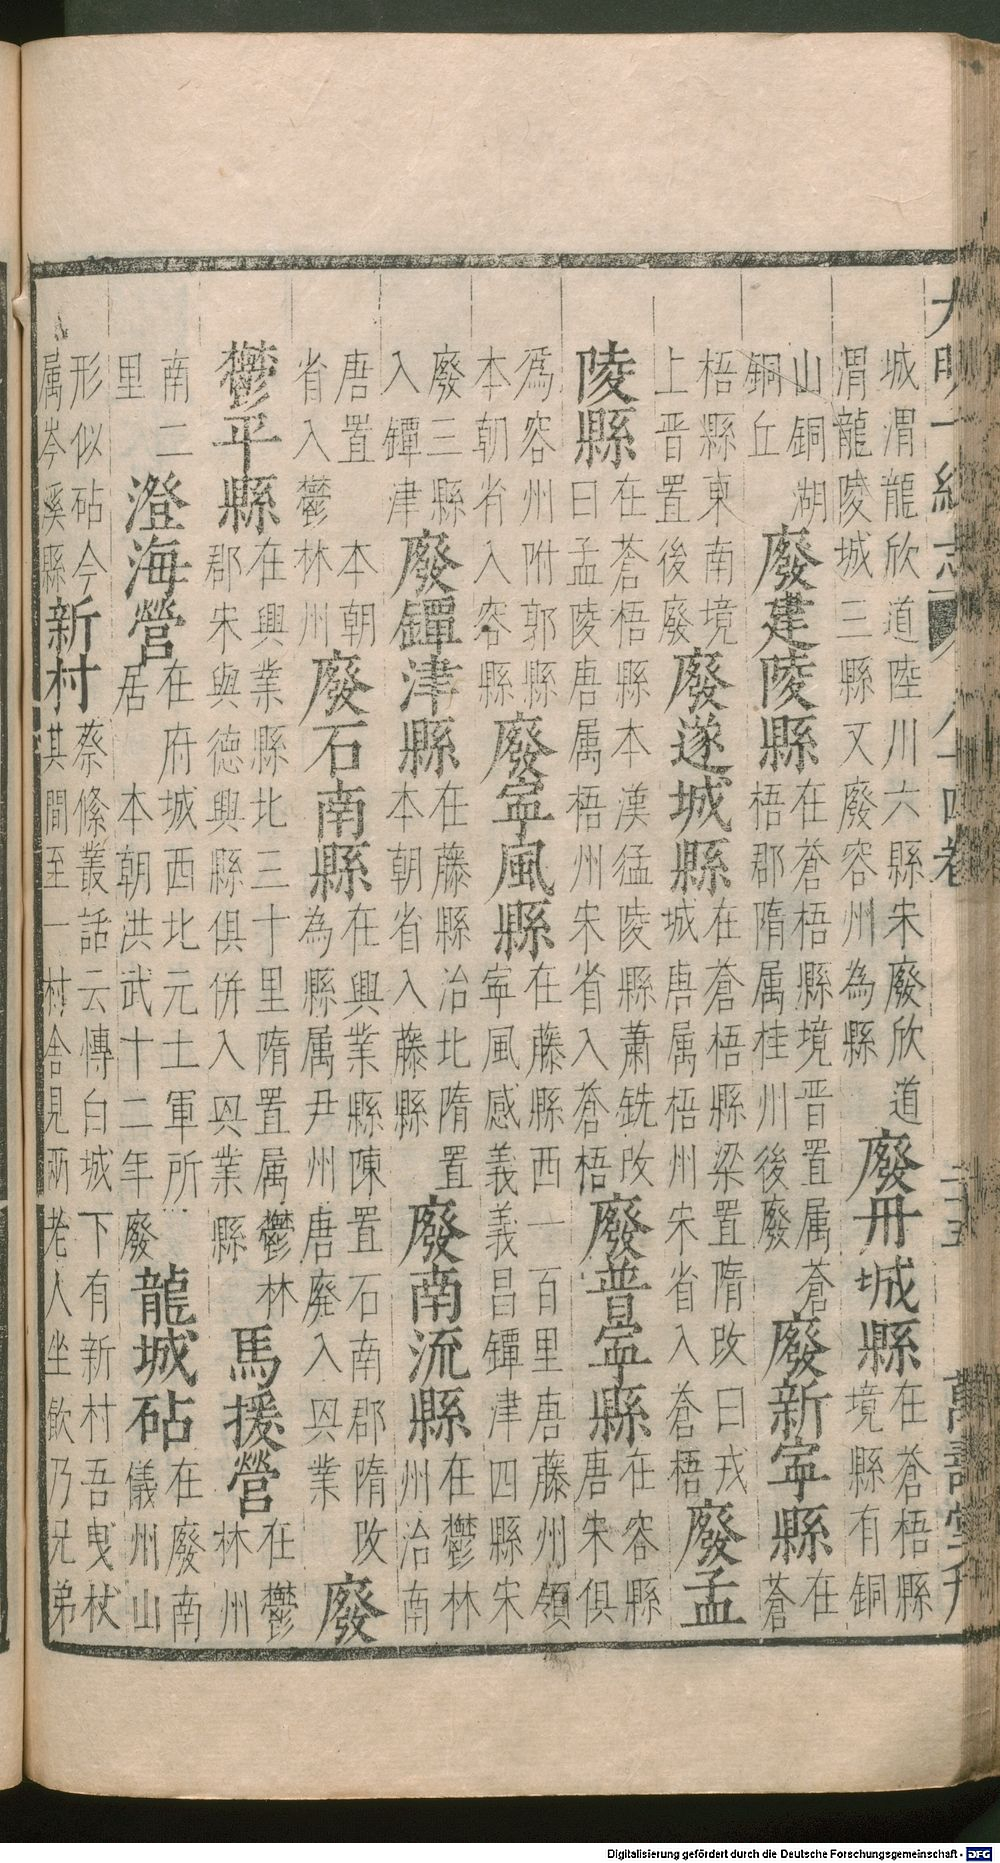 大明一統志 八十四卷 二十五 萬壽堂刊
城渭龍欣道陸川六縣宋廢欣道渭龍陵城三縣又廢容州為縣廢冊城縣在蒼梧縣境縣有銅
山銅湖銅丘廢建陵縣在蒼梧縣境晋置属蒼梧郡隋属桂州後廢廢新寜縣在蒼
梧縣東南境上晋置後廢廢遂城縣在蒼梧縣梁置隋改曰戎城唐属梧州宋省入蒼梧廢孟
陵縣在蒼梧縣本漢猛陵縣蕭銑改曰孟陵唐属梧州宋省入蒼梧廢普寜縣在容縣唐宋俱
爲容州附郭縣本朝省入容縣廢寜風縣在藤縣西一百里唐藤州領寜風感義義昌鐔津四縣宋
廢三縣入鐔津廢鐔津縣在藤縣治北隋置本朝省入藤縣廢南流縣在鬱林州治南
唐置本朝省入鬱林州廢石南縣在興業縣陳置石南郡隋攻為縣属尹州唐廢入興業廢
鬱平縣在興業縣北三十里隋置属鬱林郡宋與德興縣俱併入興業縣馬援營在鬱林州
南二里澄海營在府城西北元土軍所居本朝洪武十二年廢龍城砧在廢南儀州山
形似砧今属岑溪縣新村蔡絛叢話云傳白城下有新村吾曳杖其間至一村舍見兩老人坐飲乃兄弟
Digitalisierung gefördert durch die Deutsche Forschungsgemeinschaft - DFG